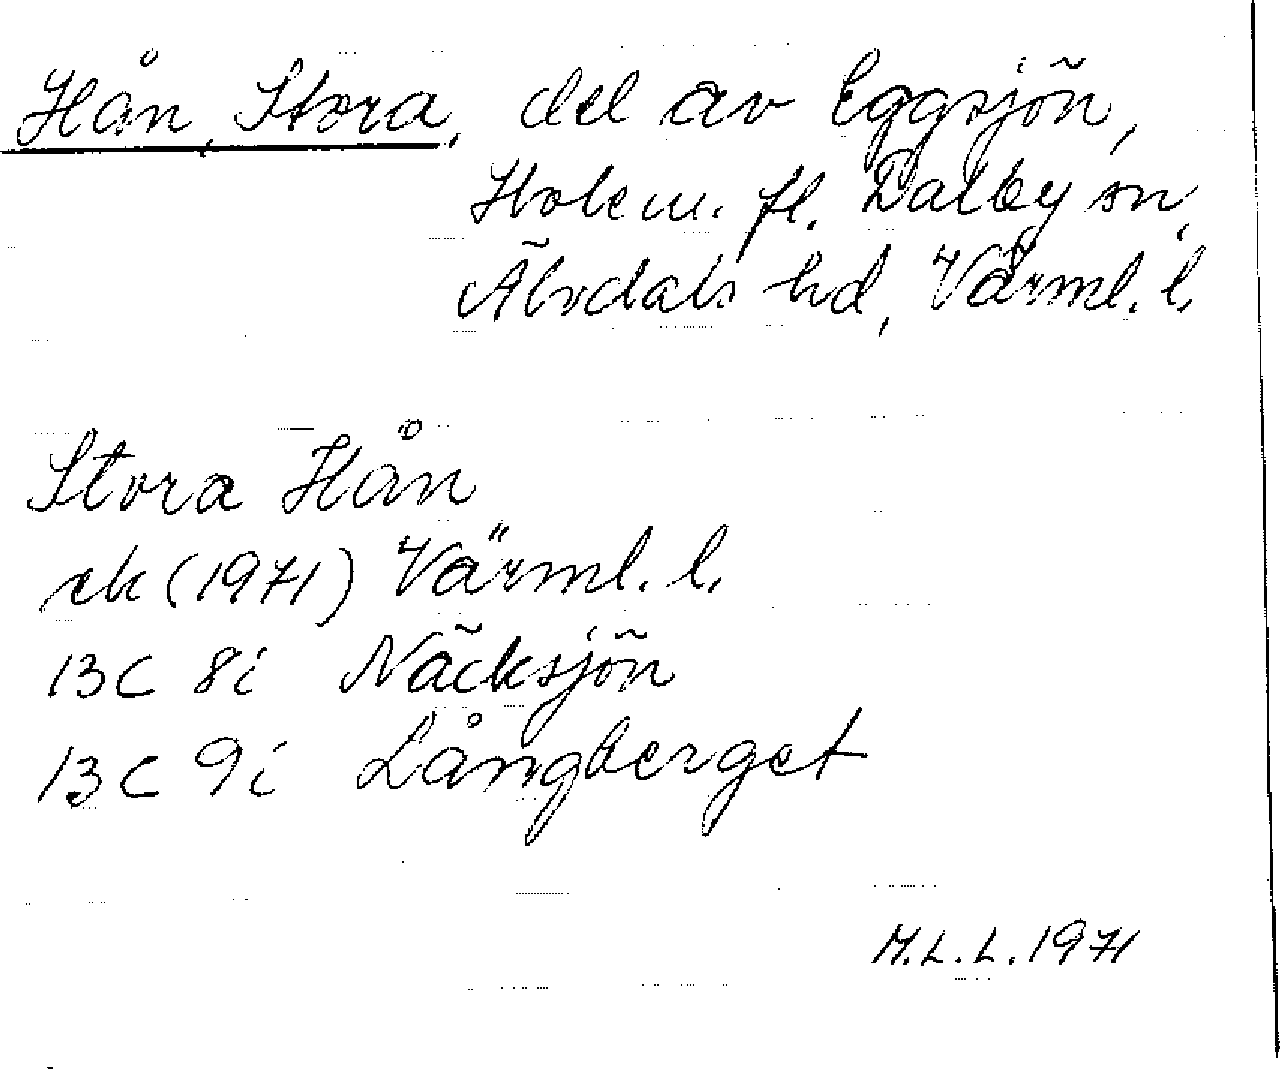 Hån, Stora, del av Eggsjön,
Holem. fl. Dalby sn,
Älvdals hd, Värml. l.
Stora Hån
ek (1971) Värml. l.
13C 8i Näcksjön
13C 9i Långberget
M.L.L. 1971